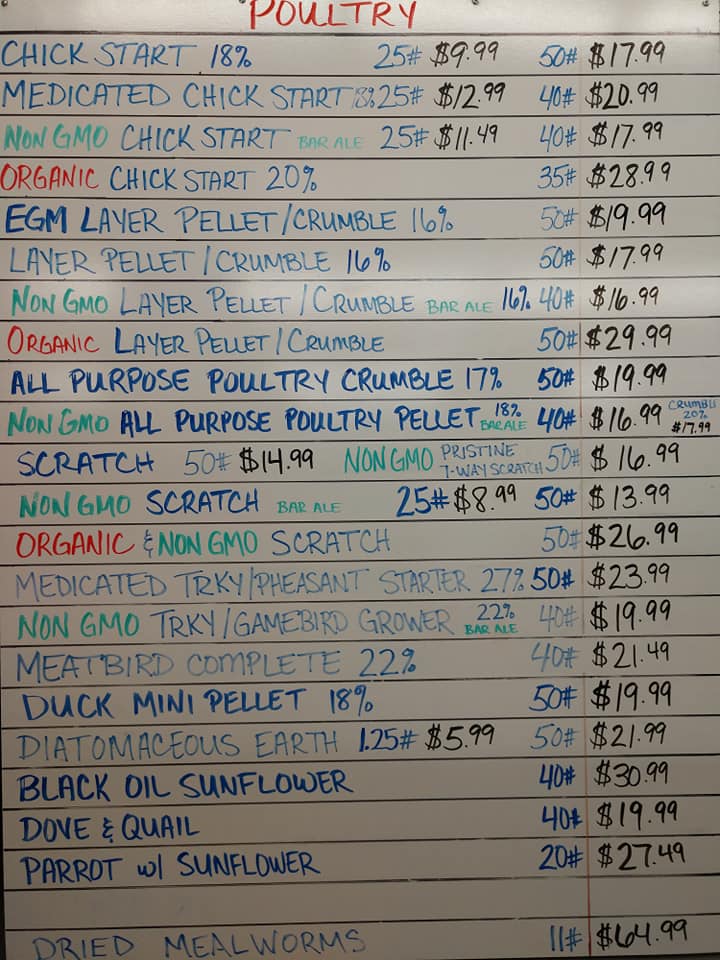 POULTRY
CHICK START 18% 25# $9.99 50# $17.99
MEDICATED CHICK START 18% 25# $12.99 40# $20.99
NON GMO CHICK START BAR ALE 25# $11.49 40# $17.99
ORGANIC CHICK START 20% 35# $28.99
EGM LAYER PELLET/CRUMBLE 16% 50# $19.99
LAYER PELLET/CRUMBLE 16% 50# $17.99
NON GMO LAYER PELLET/CRUMBLE BAR ALE 16% 40# $16.99
ORGANIC LAYER PELLET/CRUMBLE 50# $29.99
ALL PURPOSE POULTRY CRUMBLE 17% 50# $19.99
NON GMO ALL PURPOSE POULTRY PELLET 18% BAR ALE 40# $16.99 CRUMBLE 20% $17.99
SCRATCH 50# $14.99 NON GMO PRISTINE 7-WAY SCRATCH 50# $16.99
NON GMO SCRATCH BAR ALE 25# $8.99 50# $13.99
ORGANIC & NON GMO SCRATCH 50# $26.99
MEDICATED TRKY/PHEASANT STARTER 27% 50# $23.99
NON GMO TRKY/GAMEBIRD GROWER 22% BAR ALE 40# $19.99
MEATBIRD COMPLETE 22% 40# $21.49
DUCK MINI PELLET 18% 50# $19.99
DIATOMACEOUS EARTH 1.25# $5.99 50# $21.99
BLACK OIL SUNFLOWER 40# $30.99
DOVE & QUAIL 40# $19.99
PARROT w/ SUNFLOWER 20# $27.49
DRIED MEALWORMS 11# $64.99